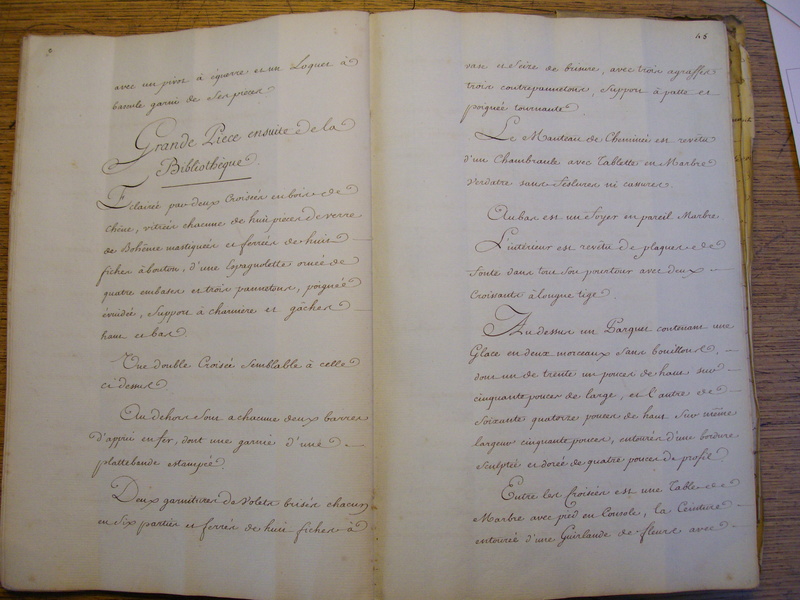 2
avec un pivot à équerre et un Loquet à
bascule garni de ses pieces
Grande Piece ensuite de la
Bibliothèque
Eclairée par deux Croisées en bois de
chêne, vitrées chacune de huit pieces de verre
de Bohême mastiquées et ferrées de huit
fiches à bouton, d'une Espagnolette ornée de
quatre embases et trois pannetons, poignée
évuidée, support à charniere et gâches
haut et bas.
Une double Croisée semblable à celle
ci dessus
Au dehors sont a chacune deux barres
d'appui en fer, dont une garnie d'une
plattebande estampée.
Deux garnitures de Volets brisés chacun
en six parties et ferrés de huit fiches à
48
vase et seize de brisure, avec trois agraffes
trois contrepannetons, support à patte et
poignée tournante
Le Manteau de Cheminée est revêtu
d'un Chambranle avec Tablette en Marbre
verdatre sans feslures ni cassures.
Au bas est un foyer en pareil Marbre
L'intérieur est revêtu de plaques de
fonte dans tout son pourtour avec deux
Croissants à longue tige.
Au dessus un Parquet contenant une
Glace en deux morceaux sans bouillons,
dont un de trente un pouces de haut sur
cinquante pouces de large, et l'autre de
soixante quatorze pouces de haut sur même
largeur cinquante pouces, entourés d'une bordure
sculptée et dorée de quatre pouces de profil
Entre les Croisées est une Table de
Marbre avec pied en Console, la Ceinture
entourée d'une Guirlande de fleurs avec